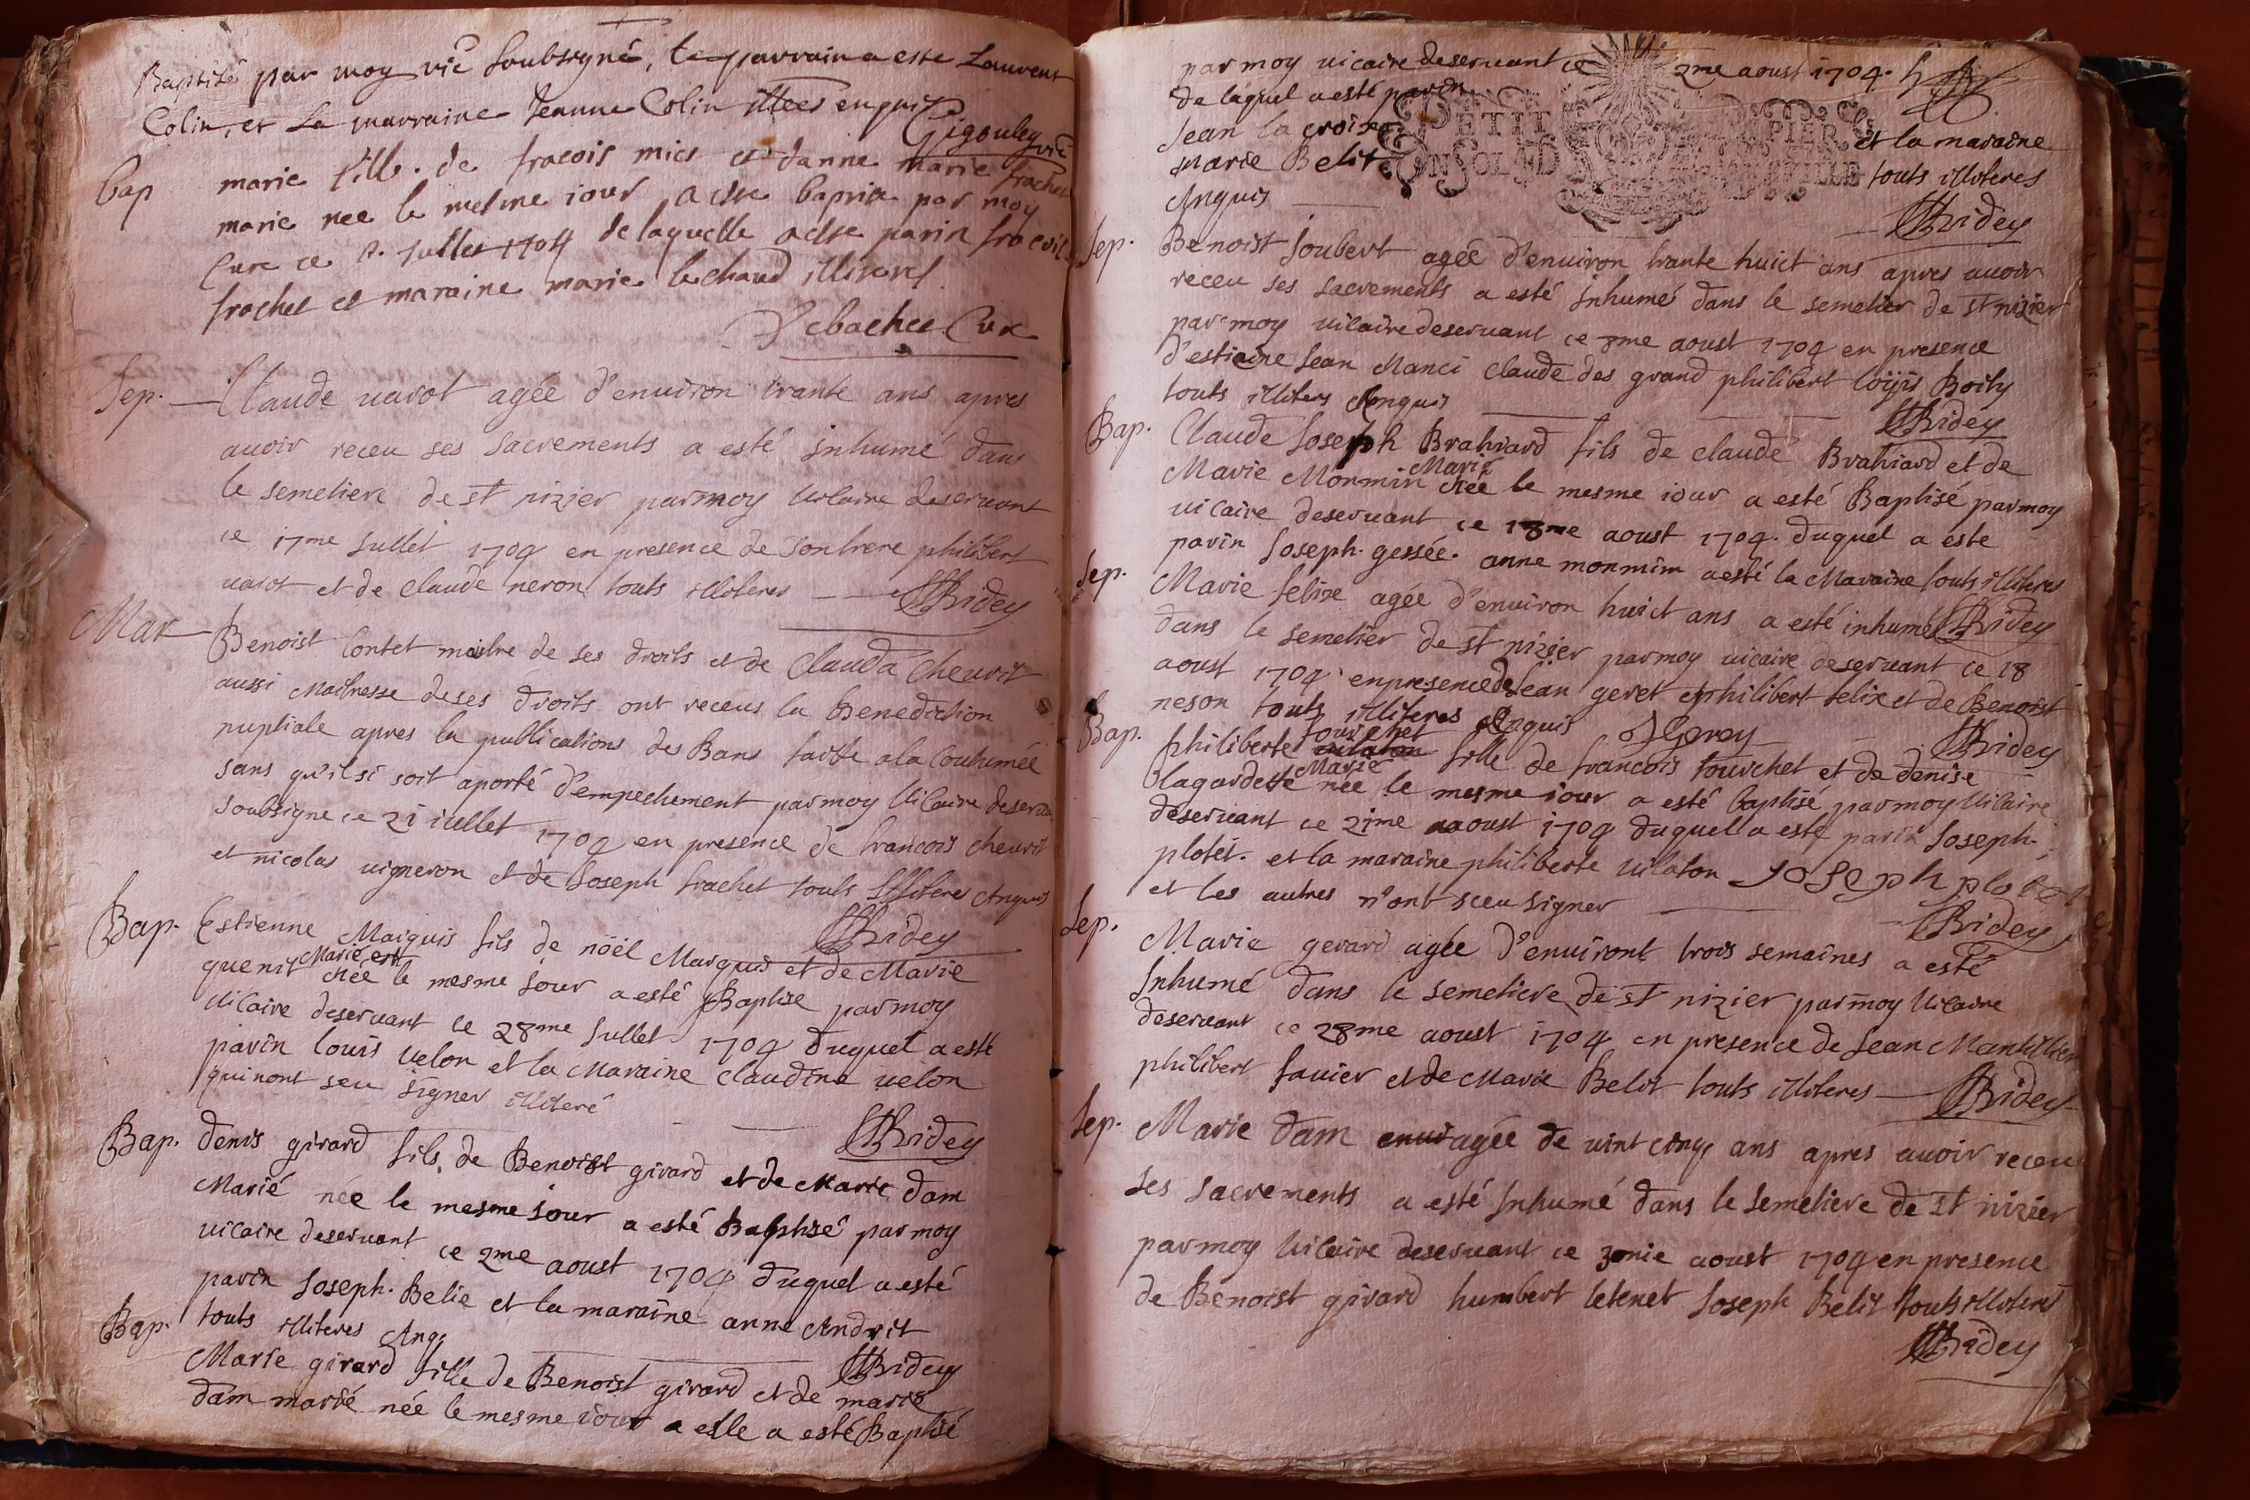 Baptisé par moy vic soubsigné, le parrain a este Laurent
Colin, et La marraine Jeanne Colin illtres enquis
Gigouley vic
Bap marie fille de fracois mics et danne marie frachet
marie nee le mesme iour a este baptise par moy
Cure ce Jullet 1704 de laquelle a este parin fracois
frachet et maraine marie lachaud illiteres
Debachet Cure
Sep. Claude varot agée d'enuiron trante ans apres
auoir receu ses sacrements a esté Inhumé dans
le semetiere de st nizier parmoy Vicaire deseruant
ce 17me Jullet 1704 en presence de son frere philibert
varot et de claude neron touts illiteres HBridey
Mar Benoist Contet maistre de ses droits et de Clauda Cheurot
aussi Maitresse deses droits ont receus la Benediction
nuptiale apres la publications des Bans faitte ala Coutumée
sans qu'il si soit aporté d'empechement parmoy Vicaire deseruant
soubsigne ce 21 iullet 1704 en presence de francois cheurot
et nicolas vigneron et de Joseph frachet touts Illiteres Anquis
HBridey
Bap. Estienne Marquis fils de nöël Marquis et de Marie
quenit Marié est née le mesme Jour a esté Baptise parmoy
Vicaire deseruant ce 28me Jullet 1704 duquel a esté
parin louis velon et la Maraine claudine velon
qui nont sceu signer illiteré
HBridey
Bap. denis girard fils de Benoist girard et de Marie dam
Marié née le mesme Jour a esté Baptisé par moy
vicaire deseruant ce 2me aoust 1704 duquel a esté
parin Joseph. Belie et la maraine anne Andrit
touts illiteres Anq HBridey
Bap. Marie girard fille de Benoist girard et de marie
dam marié née le mesme iour a elle a esté Baptisé
par moy vicaire deseruant ce 2me aoust 1704.
de laquel a esté parin
Jean la croix et la maraine
Marie Belit touts illiteres
Anquis
PETIT PAPIER
HBridey
Sep. Benoist Joubert agée d'enuiron trante huict ans apres auoir
receu ses sacrements a esté Inhumé dans le semetier de st nizier
par moy vicaire deseruant ce 7me aoust 1704 en presence
d'estiene Jean Manci claude des grand philibert Boily
touts illiters Anquis HBridey
Bap. Claude Joseph Brahiard fils de claude Brahiard et de
Marie Monmin Marié née le mesme iour a esté Baptisé parmoy
vicaire deseruant ce 13me aoust 1704. duquel a este
parin Joseph. gessée. anne monmim a esté la Maraine touts illiteres
HBridey
Sep. Marie felixe agée d'enuiron huict ans a esté inhumé
dans le semetier de st nizier parmoy vicaire deseruant ce 18
aoust 1704 enpresence de Jean geret et philibert felix et de Benoist
neson touts illiteres Anquis JGerey HBridey
Bap. philiberte tourchet fille de francois tourchet et de denise
lagardette Marié née le mesme iour a esté baptisé parmoy Vicaire
deseruant ce 21me aoust 1704 duquel a esté parin Joseph.
plotet. et la maraine philiberte vilaton Joseph plotet
et les autres n'ont sceu signer HBridey
Sep. Marie gerard agée d'enuiront trois semaines a esté
Inhumé dans le semetiere de st nizier parmoy Vicaire
deseruant ce 28me aoust 1704 en presence de Jean Mantillier
philibert fauier et de Marie Belot touts illiteres HBridey
Sep. Marie dam agée de vint cinq ans apres auoir receu
ses sacrements a esté Inhumé dans le semetiere de st nizier
parmoy Vicaire deseruant ce 30me aoust 1704 en presence
de Benoist girard humbert letenet Joseph Belit touts illiteré
HBridey